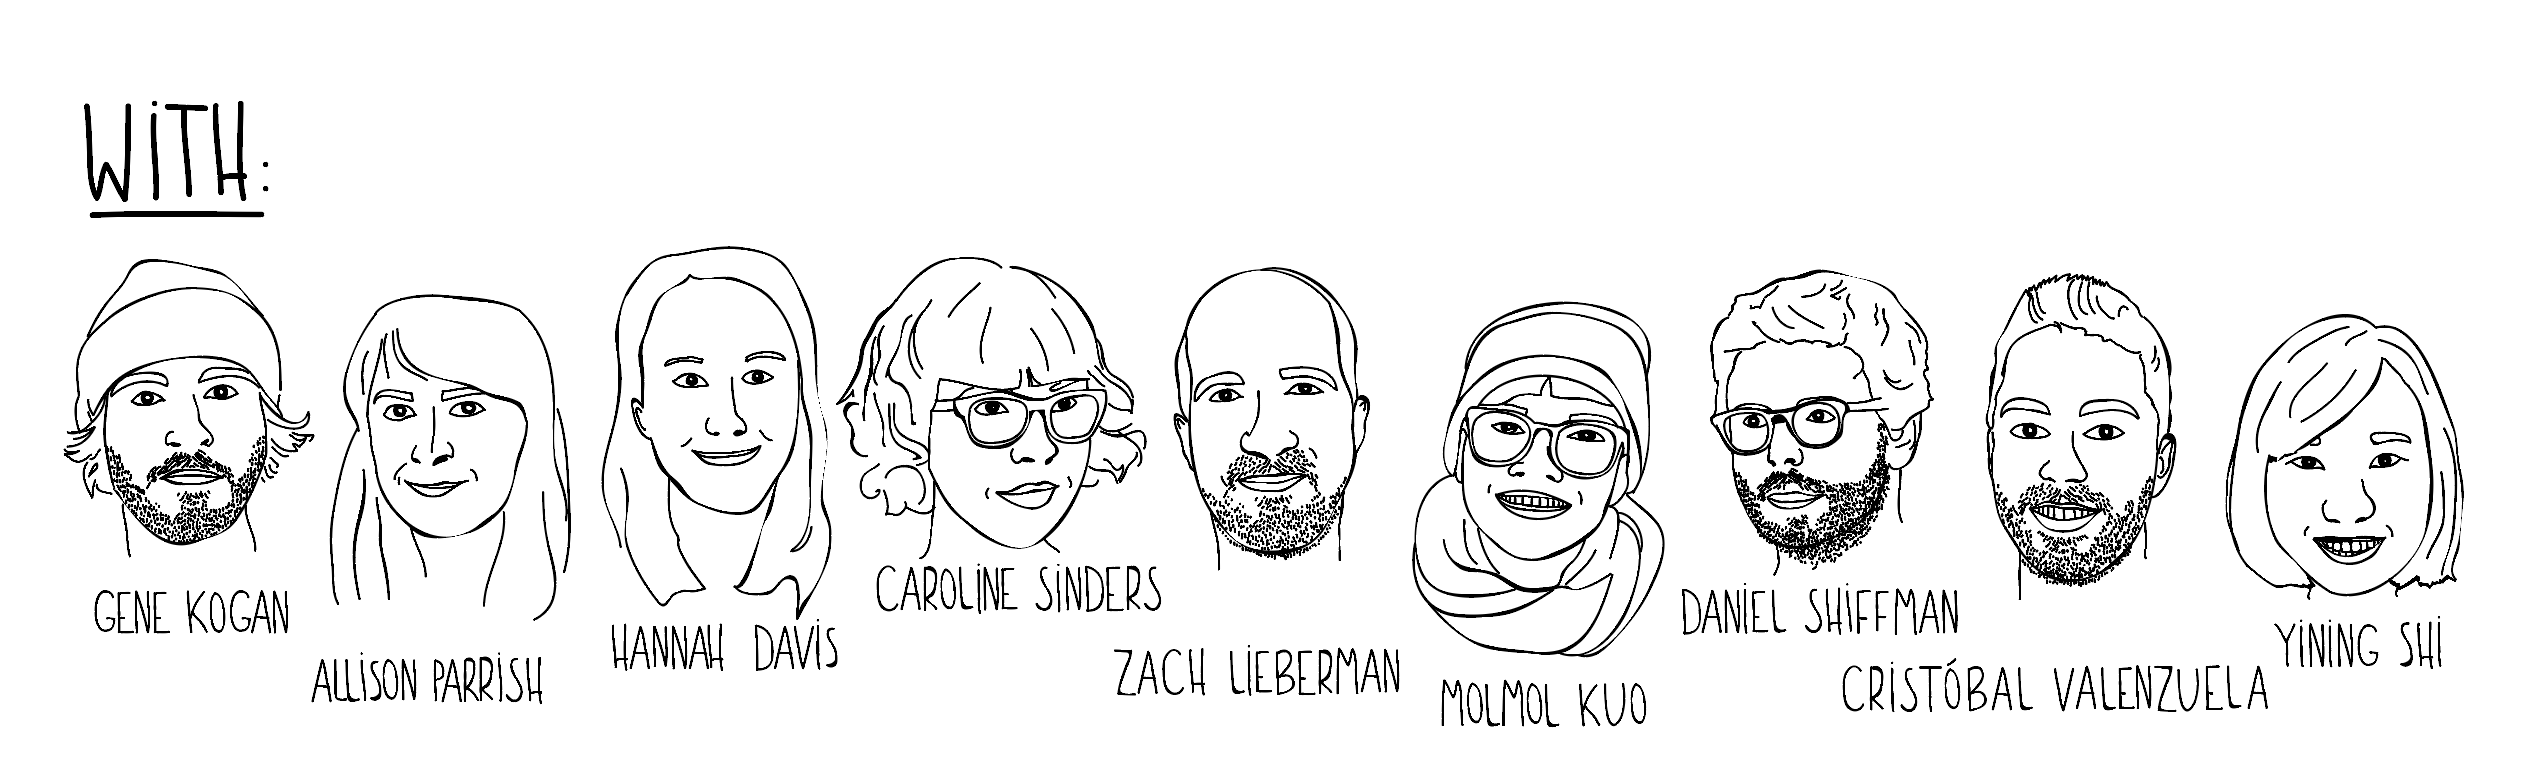 WiTH:
GENE KOGAN
ALLiSON PARRiSH
HANNAH DAViS
CAROLiNE SiNDERS
ZACH LiEBERMAN
MOLMOL KUO
DANiEL SHiFFMAN
CRiSTÓBAL VALENZUELA
YiNiNG SHi